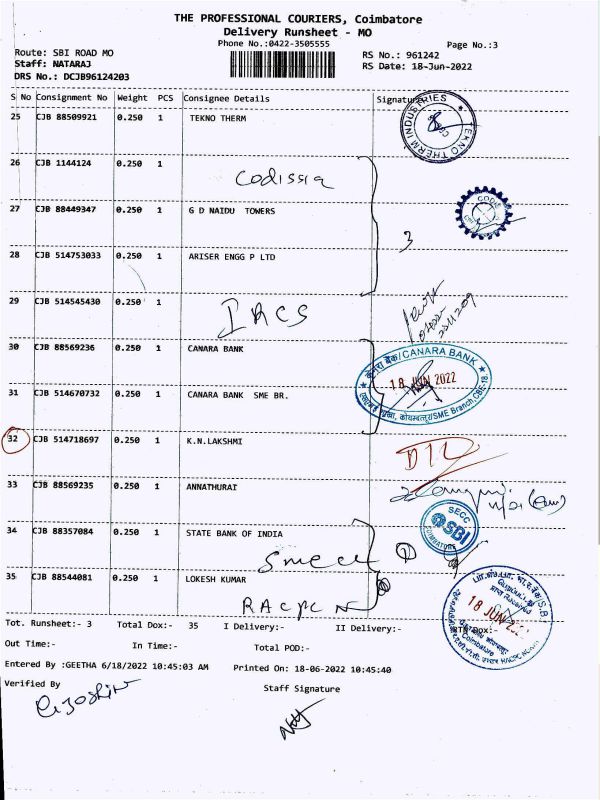 THE PROFESSIONAL COURIERS, Coimbatore
Delivery Runsheet - MO
Phone No.:0422-3505555
Page No.:3
Route: SBI ROAD MO
RS No.: 961242
Staff: NATARAJ
RS Date: 18-Jun-2022
DRS No.: DCJB96124203
S No Consignment No Weight PCS Consignee Details Signature
25 CJB 88509921 0.250 1 TEKNO THERM
TEKNO THERM INDUSTRIES
26 CJB 1144124 0.250 1
Codissia
27 CJB 88449347 0.250 1 G D NAIDU TOWERS
3
28 CJB 514753033 0.250 1 ARISER ENGG P LTD
29 CJB 514545430 0.250 1
30 CJB 88569236 0.250 1 CANARA BANK
केनरा बैंक/CANARA BANK
18 JUN 2022
SME Branch, CBE-18
31 CJB 514670732 0.250 1 CANARA BANK SME BR.
32 CJB 514718697 0.250 1 K.N.LAKSHMI
33 CJB 88569235 0.250 1 ANNATHURAI
SECC
SBI
COIMBATORE
34 CJB 88357084 0.250 1 STATE BANK OF INDIA
1
35 CJB 88544081 0.250 1 LOKESH KUMAR
RACPC N
18 JUN
Coimbatore
Tot. Runsheet:- 3 Total Dox:- 35 I Delivery:- II Delivery:- Dox:-
Out Time:- In Time:- Total POD:-
Entered By :GEETHA 6/18/2022 10:45:03 AM Printed On: 18-06-2022 10:45:40
Verified By
Staff Signature